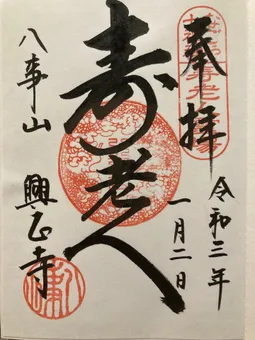 奉拝
令和二年
一月二日
寿老人
八事山
興正寺